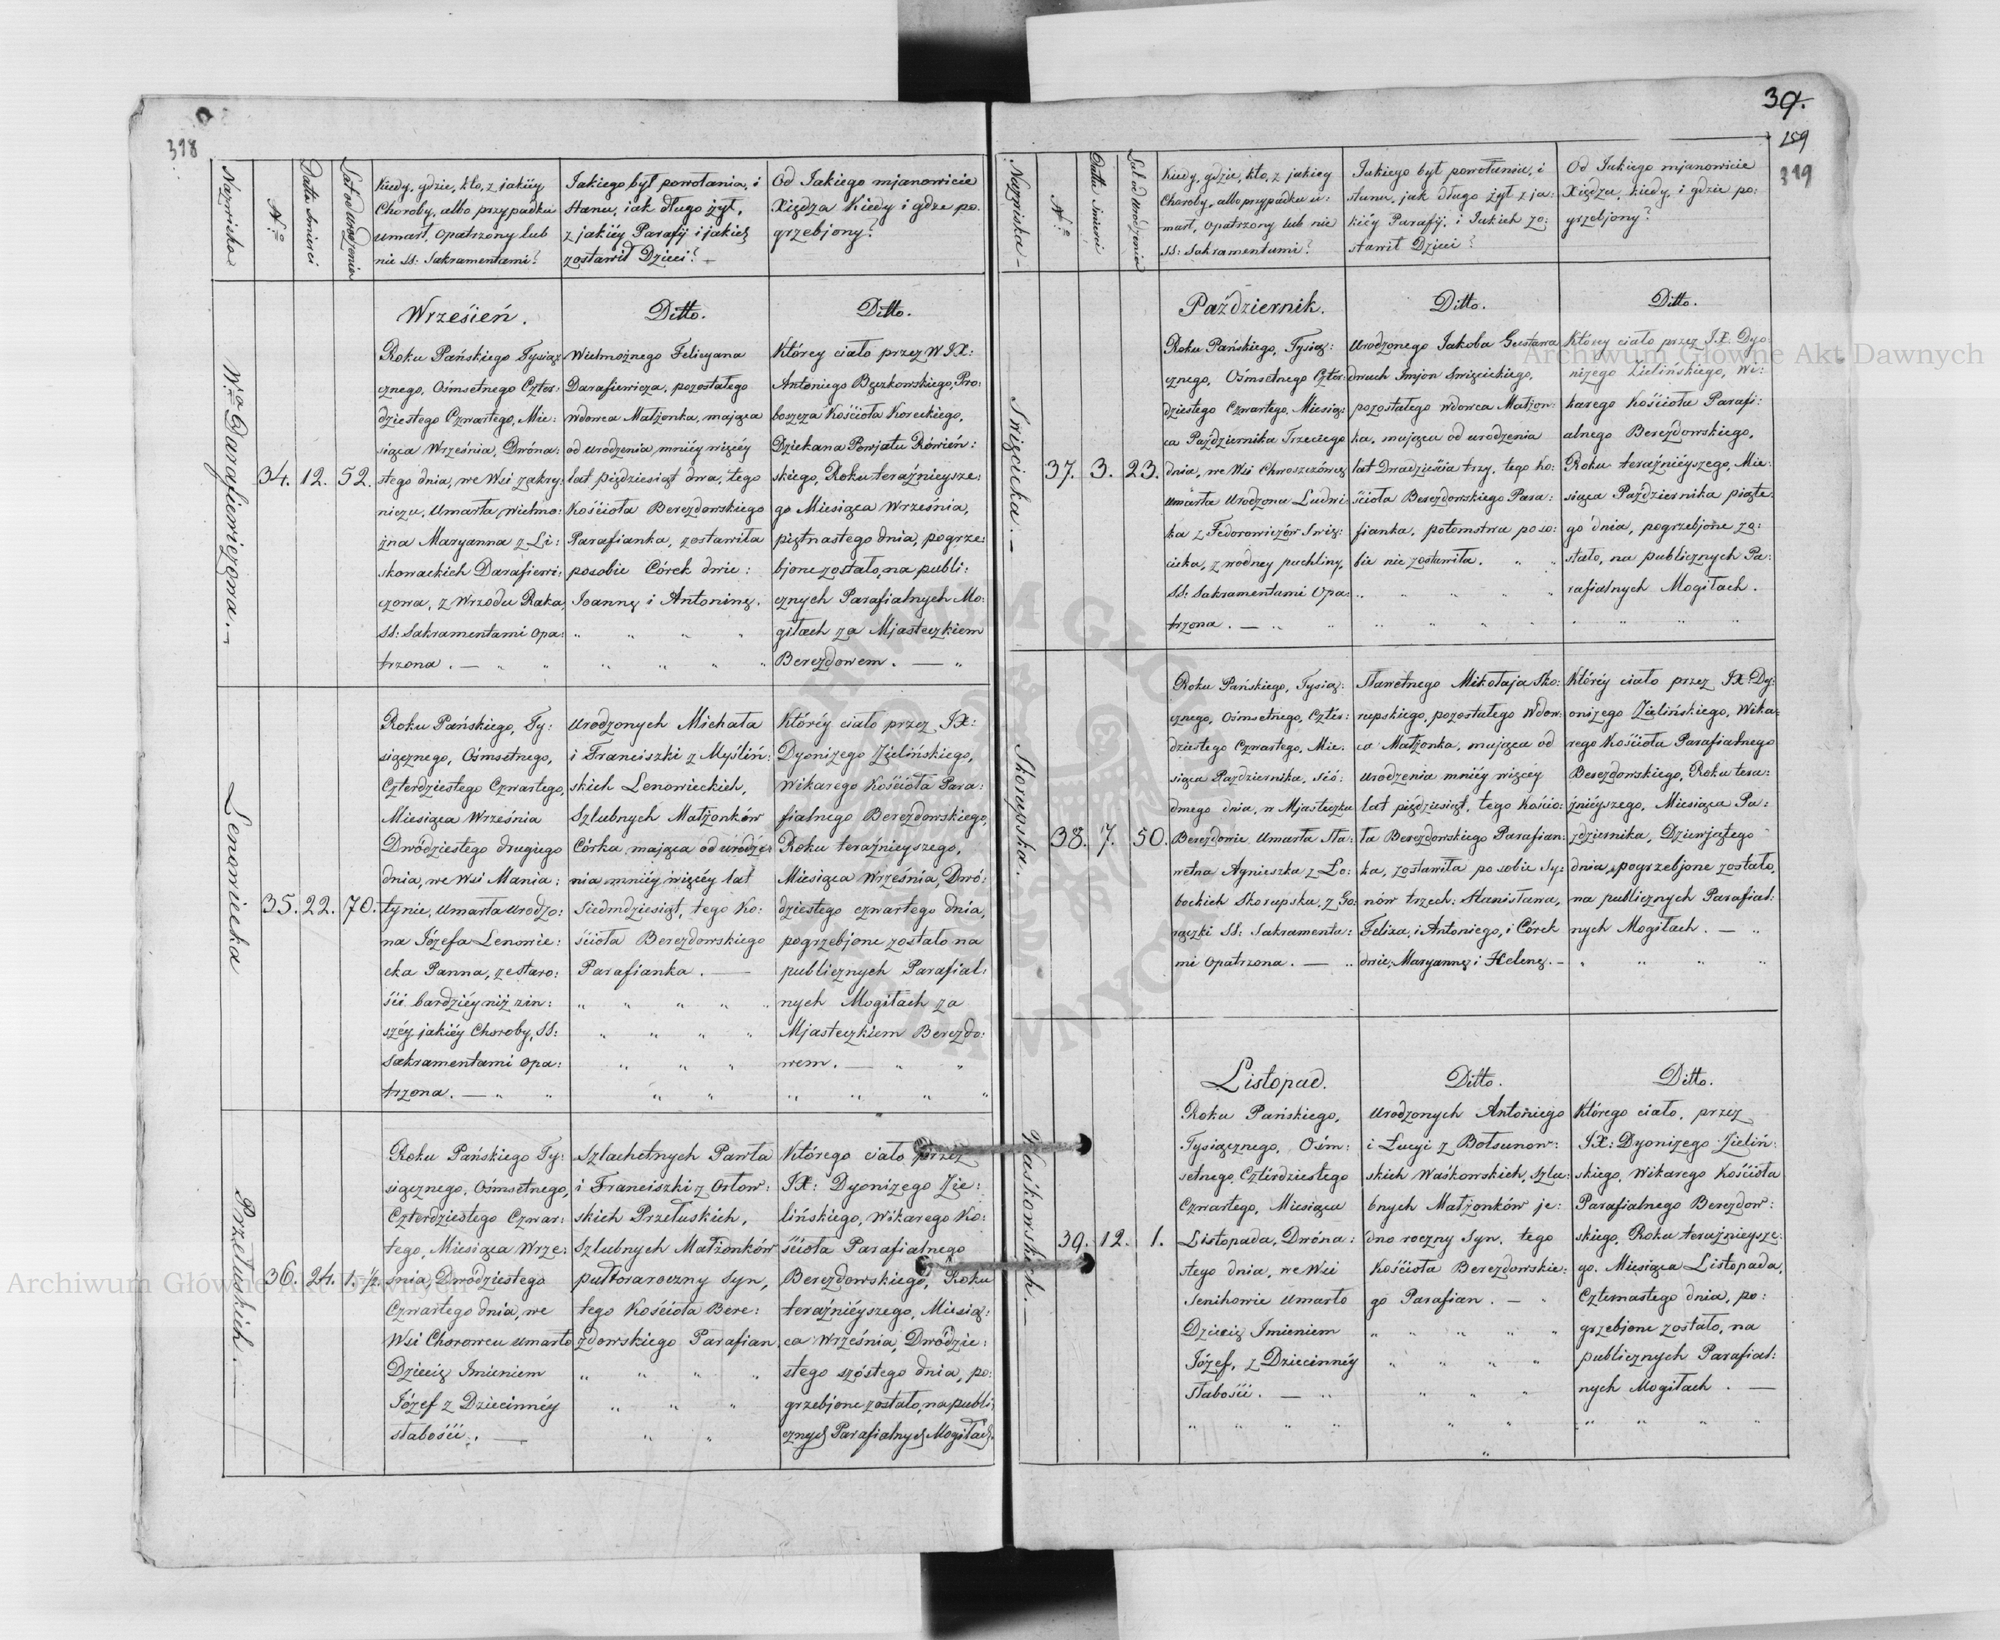 318
Nazwiska
N.o
Data śmierci
Lat od urodzenia
Kiedy, gdzie, kto, z jakiéy
Choroby, albo przypadku
umarł, opatrzony lub
nie SS: Sakramentami?
Jakiego był powołania, i
stanu, jak długo żył,
z jakiéy Parafij i jakich
zostawił Dzieci? —
Od Jakiego mjanowicie
Xiędza Kiedy i gdze po:
grzebjony?
Wna Darafiewiczowa. —
34.
12.
52.
Wrzesień.
Roku Pańskiego Tysiąz
cznego, Ośmsetnego Czter:
dziestego Czwartego, Mie:
siąca Września, Dwóna:
stego dnia, we Wsi Zakry:
niczu, Umarła wielmo:
żna Maryanna z Li:
skowackich Darafiewi:
czowa, z Wrzodu Raka,
SS: Sakramentami opa:
trzona. —
Ditto.
Wielmożnego Felicyana
Darafiewicza, pozostałego
wdowca Małżonka, mająca
od urodzenia mniéy więcéy
lat pięćdziesiąt dwa, tego
Kościoła Berezdowskiego
Parafianka, zostawiła
posobie Córek dwie:
Joannę i Antoninę.
Ditto.
Któréy ciało przez WJX:
Antoniego Bęczkowskiego, Pro:
boszcza Kościoła Koreckiego,
Dziekana Powjatu Rówień:
skiego, Roku teraźnieysze:
go Miesiąca Września,
piętnastego dnia, pogrze:
bjone zostało, na publi:
cznych Parafialnych Mo:
giłach za Mjasteczkiem
Berezdowem. —
Lenowiecka
35.
22.
70.
Roku Pańskiego, Ty:
siącznego, Ośmsetnego,
Czterdziestego Czwartego,
Miesiąca Września
Dwódziestego drugiego
dnia, we Wsi Mania:
tynie, Umarła urodzo:
na Józefa Lenowie:
cka Panna, z staro:
ści bardziéy niż zin:
széy jakiéy Choroby, SS:
Sakramentami opa:
trzona. —
Urodzonych Michała
i Franciszki z Myśliń:
skich Lenowieckich,
Szlubnych Małżonków
Córka, mająca od urodze:
nia mniéy więcéy lat
Siedmdziesiąt, tego Ko:
ścioła Berezdowskiego
Parafianka. —
Któréy ciało przez JX:
Dyonizego Zielińskiego,
Wikarego Kościoła Para:
fialnego Berezdowskiego,
Roku teraźnieyszego,
Miesiąca Września, Dwó:
dziestego czwartego dnia,
pogrzebjone zostało na
publicznych Parafial:
nych Mogiłach za
Mjasteczkiem Berezdo:
wem. —
Przełuskich. —
36.
24.
1. 1/2.
Roku Pańskiego Ty:
siącznego, Ośmsetnego,
Czterdziestego Czwar:
tego, Miesiąca Wrze:
śnia, Dwódziestego
Czwartego dnia, we
Wsi Chorowcu umarło
Dziecię Imieniem
Józef z Dziecinnéy
słabości. —
Szlachetnych Pawła
i Franciszki z Orłow:
skich Przełuskich,
Szlubnych Małżonków
pułtoraroczny Syn,
tego Kościoła Bere:
zdowskiego Parafian.
Którego ciało przez
JX: Dyonizego Zie:
lińskiego, Wikarego Ko:
ścioła Parafialnego
Berezdowskiego, Roku
teraźniéyszego, Miesią:
ca Września, Dwódzie:
stego szóstego dnia, po:
grzebjone zostało, na publi:
cznych Parafialnych Mogiłach.
39.
159
319
Nazwiska —
N.o
Data śmierci
Lat od urodzenia
Kiedy, gdzie, kto, z jakiey
Choroby, albo przypadku u:
marł, opatrzony lub nie
SS: Sakramentami?
Jakiego był powołania, i
stanu, jak długo żył z ja:
kiéy Parafij, i Jakich zo:
stawił Dzieci?
Od Jakiego mjanowicie
Xiędza, kiedy, i gdzie po:
grzebjony?
Swięcicka. —
37.
3.
23.
Październik.
Roku Pańskiego, Tysią:
cznego, Ośmsetnego Czter:
dziestego Czwartego, Miesią:
ca Października Trzeciego
dnia, we Wsi Chwoszczówce
Umarła Urodzona Ludwi:
ka z Fedorowiczów Swię:
cicka, z wodney puchliny,
SS: Sakramentami Opa:
trzona. —
Ditto.
Urodzonego Jakoba Gustawa
dwuch Imjon Swięcickiego,
pozostałego wdowca Małżon:
ka, mająca od urodzenia
lat Dwadzieścia trzy, tego Ko:
ścioła Berezdowskiego Para:
fianka, potomstwa po so:
bie nie zostawiła.
Ditto.
Któréy ciało przez JX: Dyo:
nizego Zielińskiego, Wi:
karego Kościoła Parafi:
alnego Berezdowskiego,
Roku teraźniéyszego, Mie:
siąca Października piąte:
go dnia, pogrzebjone zo:
stało, na publicznych Pa:
rafialnych Mogiłach.
Skorupska.
38.
7.
50.
Roku Pańskiego, Tysią:
cznego, Ośmsetnego, Czter:
dziestego Czwartego, Mie:
siąca Października, Sió:
dmego dnia, w Mjasteczku
Berezdowie Umarła Sła:
wetna Agnieszka z Ło:
bockich Skorupska, z Go:
rączki SS: Sakramenta:
mi Opatrzona. —
Sławetnego Mikołaja Sko:
rupskiego, pozostałego Wdow:
ca Małżonka, mająca od
urodzenia mniéy więcey
lat pięćdziesiąt, tego Kościo:
ła Berezdowskiego Parafian:
ka, zostawiła po sobie Sy:
nów trzech: Stanisława,
Felixa, i Antoniego, i Córek
dwie, Maryannę i Helenę. —
Któréy ciało przez JX: Dy:
onizego Zielińskiego, Wika:
rego Kościoła Parafialnego
Berezdowskiego, Roku tera:
źniéyszego, Miesiąca Pa:
ździernika, Dziewjątego
dnia, pogrzebjone zostało,
na publicznych Parafial:
nych Mogiłach. —
Waśkowskich. —
39.
12.
1.
Listopad.
Roku Pańskiego,
Tysiącznego, Ośm:
setnego, Czterdziestego
Czwartego, Miesiąca
Listopada, Dwóna:
stego dnia, we Wsi
Senihowie umarło
Dziecię Imieniem
Józef, z Dziecinnéy
słabości. —
Ditto.
Urodzonych Antoniego
i Łucyi z Bołsunow:
skich Waśkowskich, Szlu:
bnych Małżonków je:
dno roczny Syn, tego
Kościoła Berezdowskie:
go Parafian. —
Ditto.
Którego ciało, przez
JX: Dyonizego Zieliń:
skiego, Wikarego Kościoła
Parafialnego Berezdow:
skiego, Roku teraźnieysze:
go, Miesiąca Listopada,
Czternastego dnia, po:
grzebjone zostało, na
publicznych Parafial:
nych Mogiłach. —
Archiwum Główne Akt Dawnych
Archiwum Główne Akt Dawnych